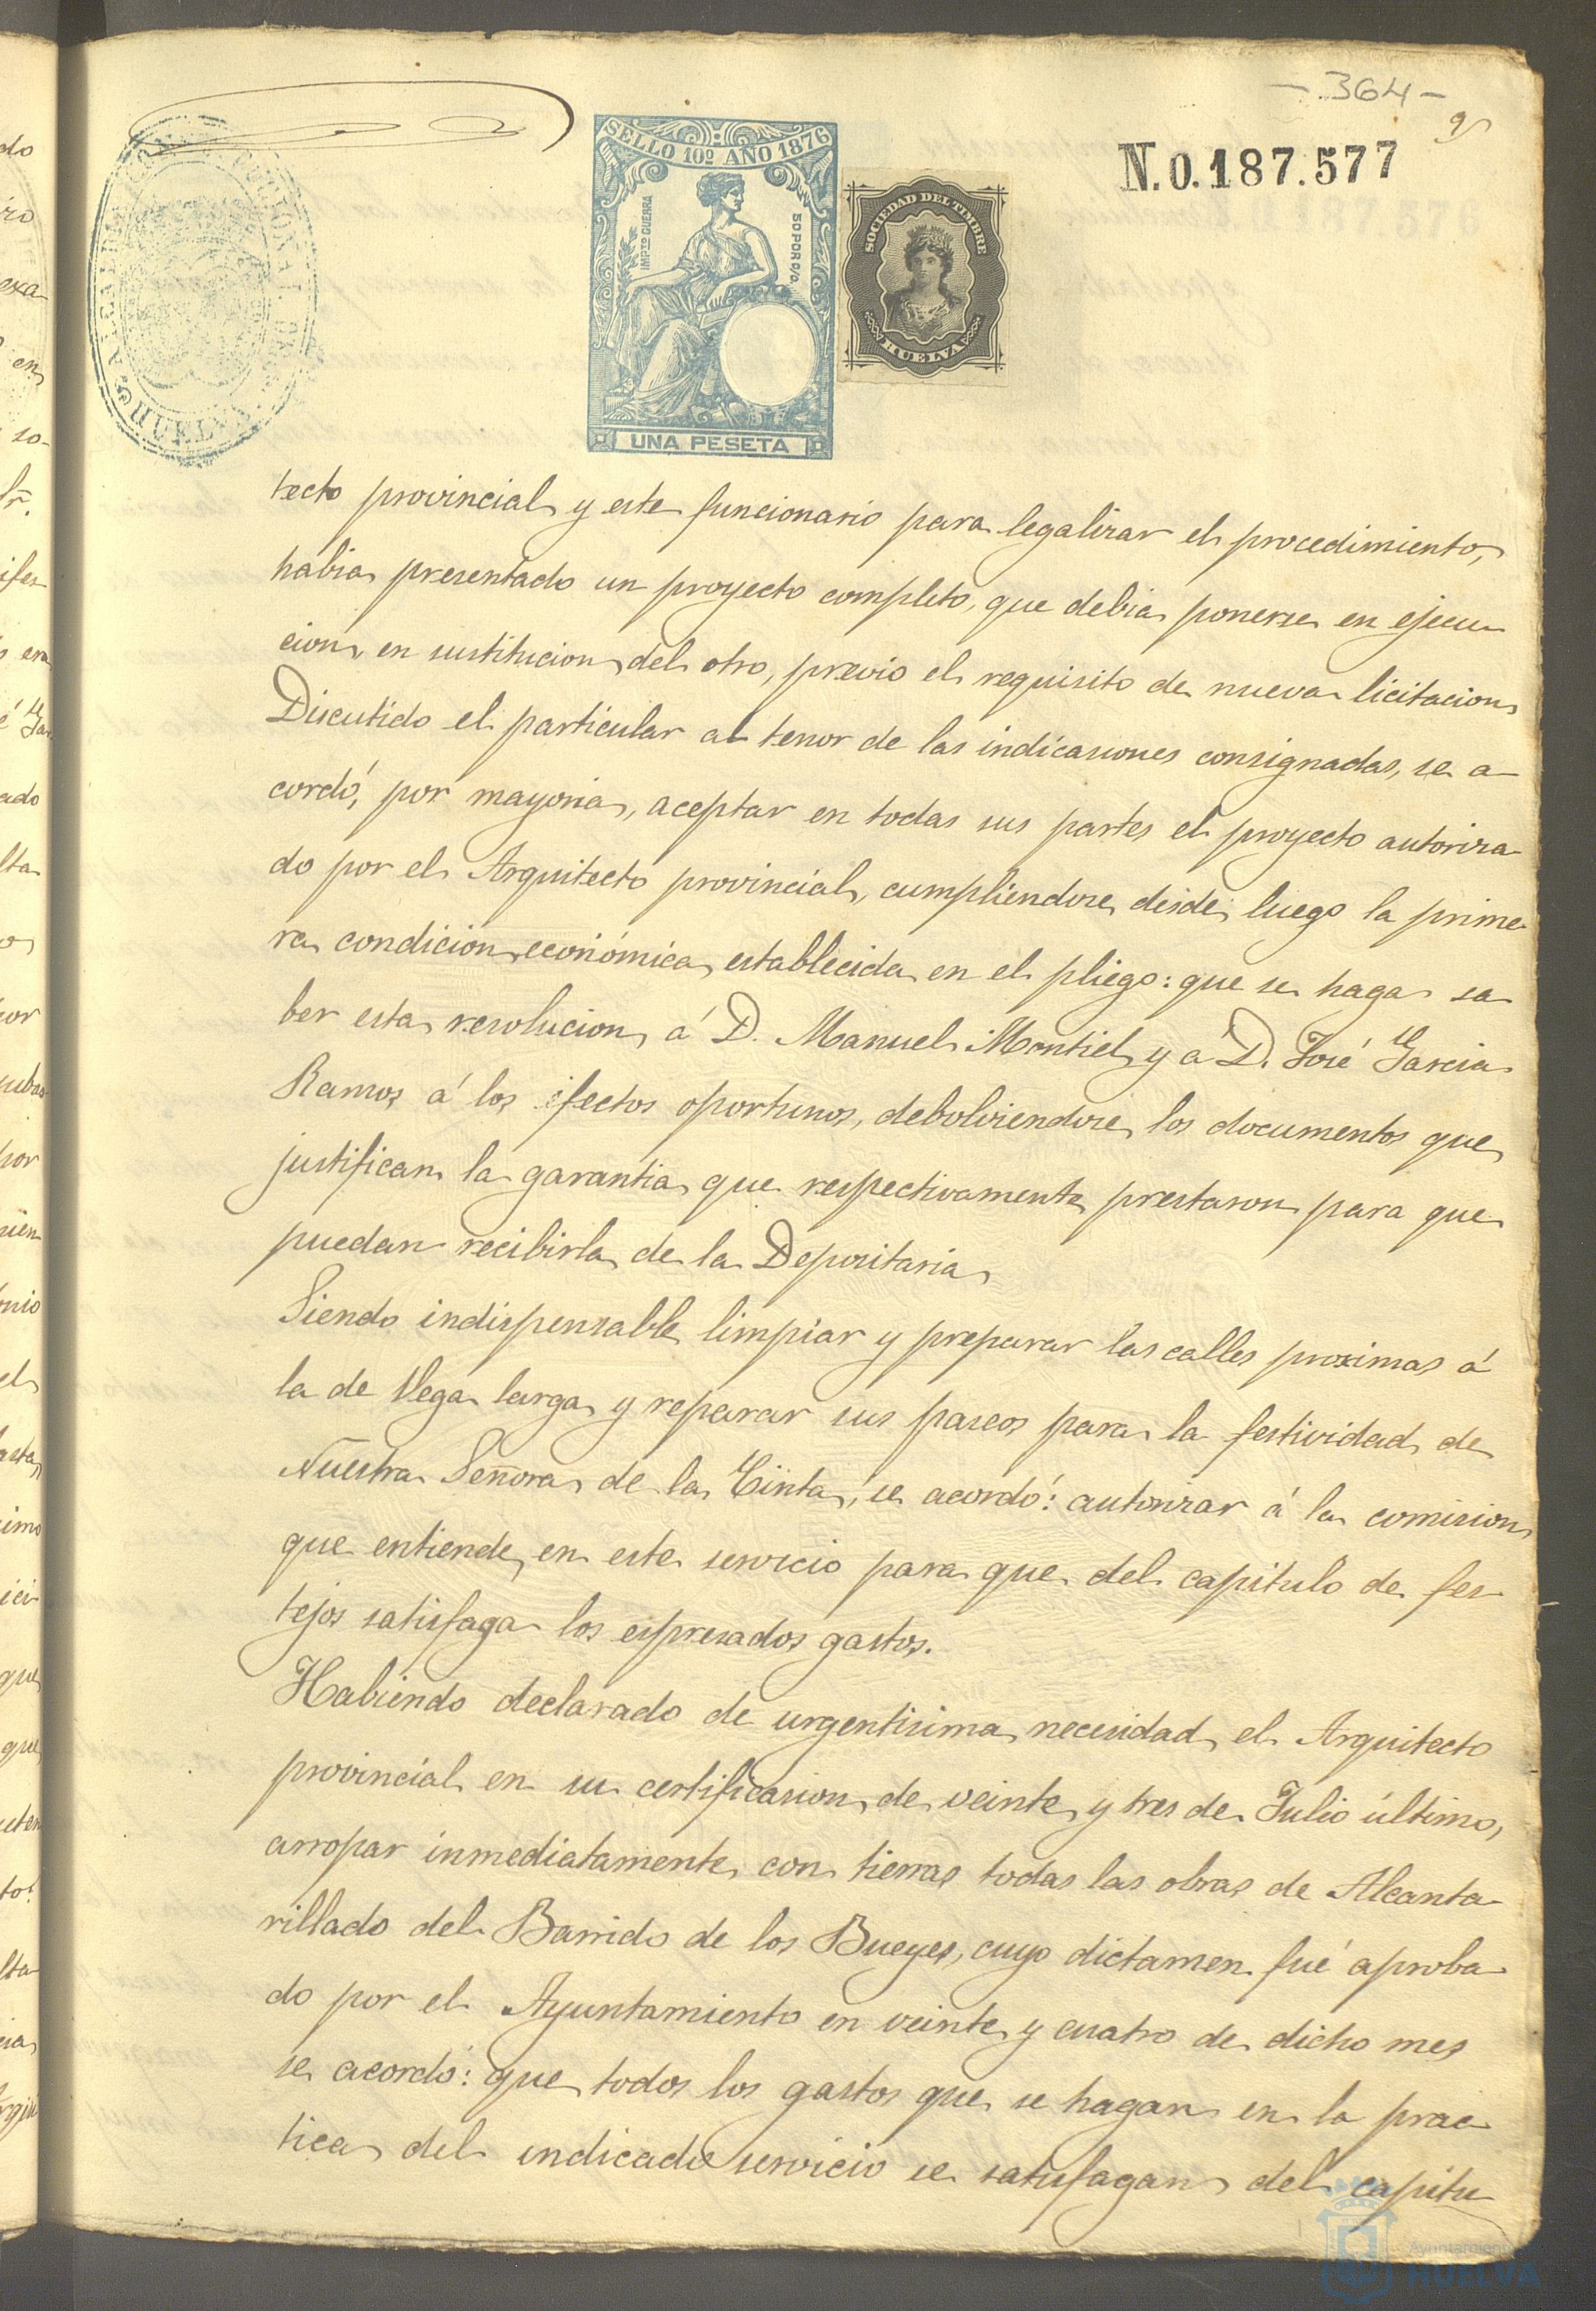 - 364 -
N.0.187.577
SELLO 10º AÑO 1876
IMPTO GUERRA
50 POR 0/0.
UNA PESETA
SOCIEDAD DEL TIMBRE
HUELVA
HUELVA
tecto provincial y este funcionario para legalizar el procedimiento,
habia presentado un proyecto completo, que debia ponerse en ejecu
cion, en sustitucion del otro, previo el requisito de nueva licitacion
Discutido el particular al tenor de las indicaciones consignadas, se a-
cordó, por mayoria, aceptar en todas sus partes el proyecto autoriza
do por el Arquitecto provincial, cumpliendose desde luego la prime
ra condicion económica establecida en el pliego: que se haga sa
ber esta resolucion á D. Manuel Montiel y a D. José Garcia
Ramos á los efectos oportunos, debolviendose los documentos que
justifican la garantia que respectivamente prestaron para que
puedan recibirla de la Depositaria
Siendo indispensable limpiar y preparar las calles proximas á
la de Vega larga y reparar sus paseos para la festividad de
Nuestra Señora de la Cinta, se acordó: autorizar á la comision
que entiende en este servicio para que del capitulo de fes
tejos satisfaga los espresados gastos.
Habiendo declarado de urgentisima necesidad el Arquitecto
provincial en su certificacion de veinte y tres de Julio último,
arropar inmediatamente con tierras todas las obras de Alcanta-
rillado del Barrido de los Bueyes, cuyo dictamen fué aproba
do por el Ayuntamiento en veinte y cuatro de dicho mes
se acordó: que todos los gastos que se hagan en la prac
tica del indicado servicio se satisfagan del capitu
Ayuntamiento
HUELVA